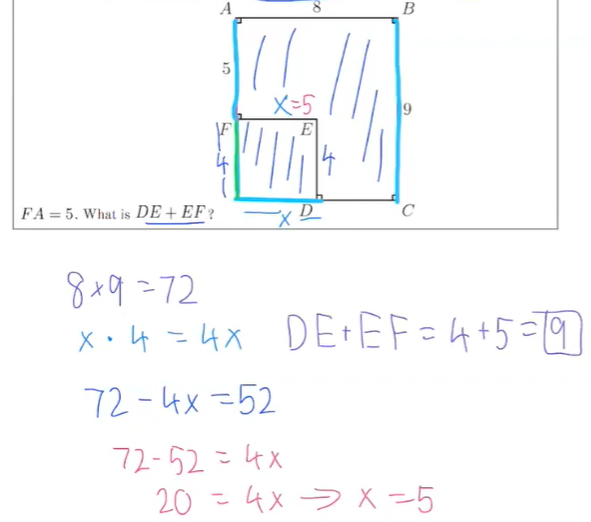 A 8 B
5
x=5
9
F E
4 4
x D C
FA = 5. What is DE + EF?
8×9 = 72
x · 4 = 4x DE+EF = 4+5 = 9
72 - 4x = 52
72-52 = 4x
20 = 4x ⇒ x = 5